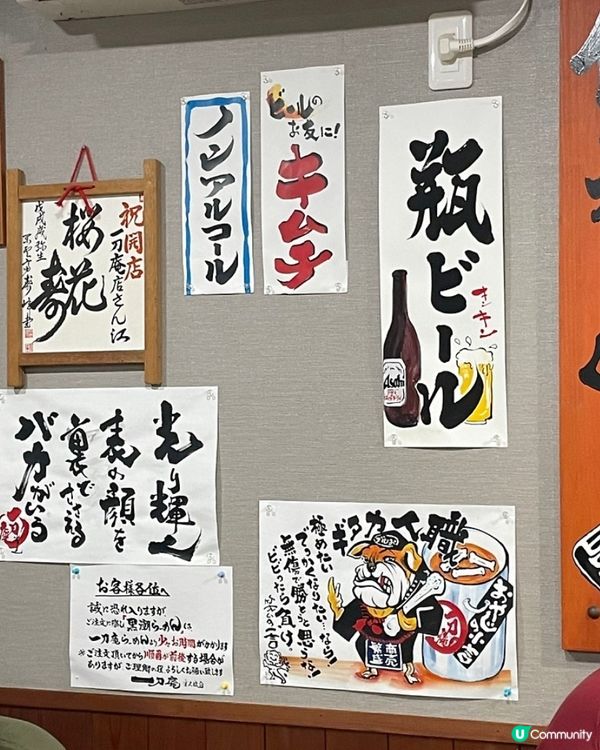 祝開店
一刀庵店さん江
桜花
寿
戊戌歳弥生
ノンアルコール
ビールの
お友に!
キムチ
瓶ビール
キンキン
Asahi
光り輝く
表の顔を
裏でささえる
バカがいる
お客様各位へ
誠に恐れ入りますが、
ご注文に際し黒潮らーめんは
一刀庵らーめんより少々お時間がかかります
※ご注文頂いてから順番が前後する場合が
ありますがご理解の程よろしくお願い致します
一刀庵
ギタカイ職
極めたい
でっかくなりたい…なら!
無傷で勝とうと思うな!
ビビったら負け。
商売
繁盛
U Community